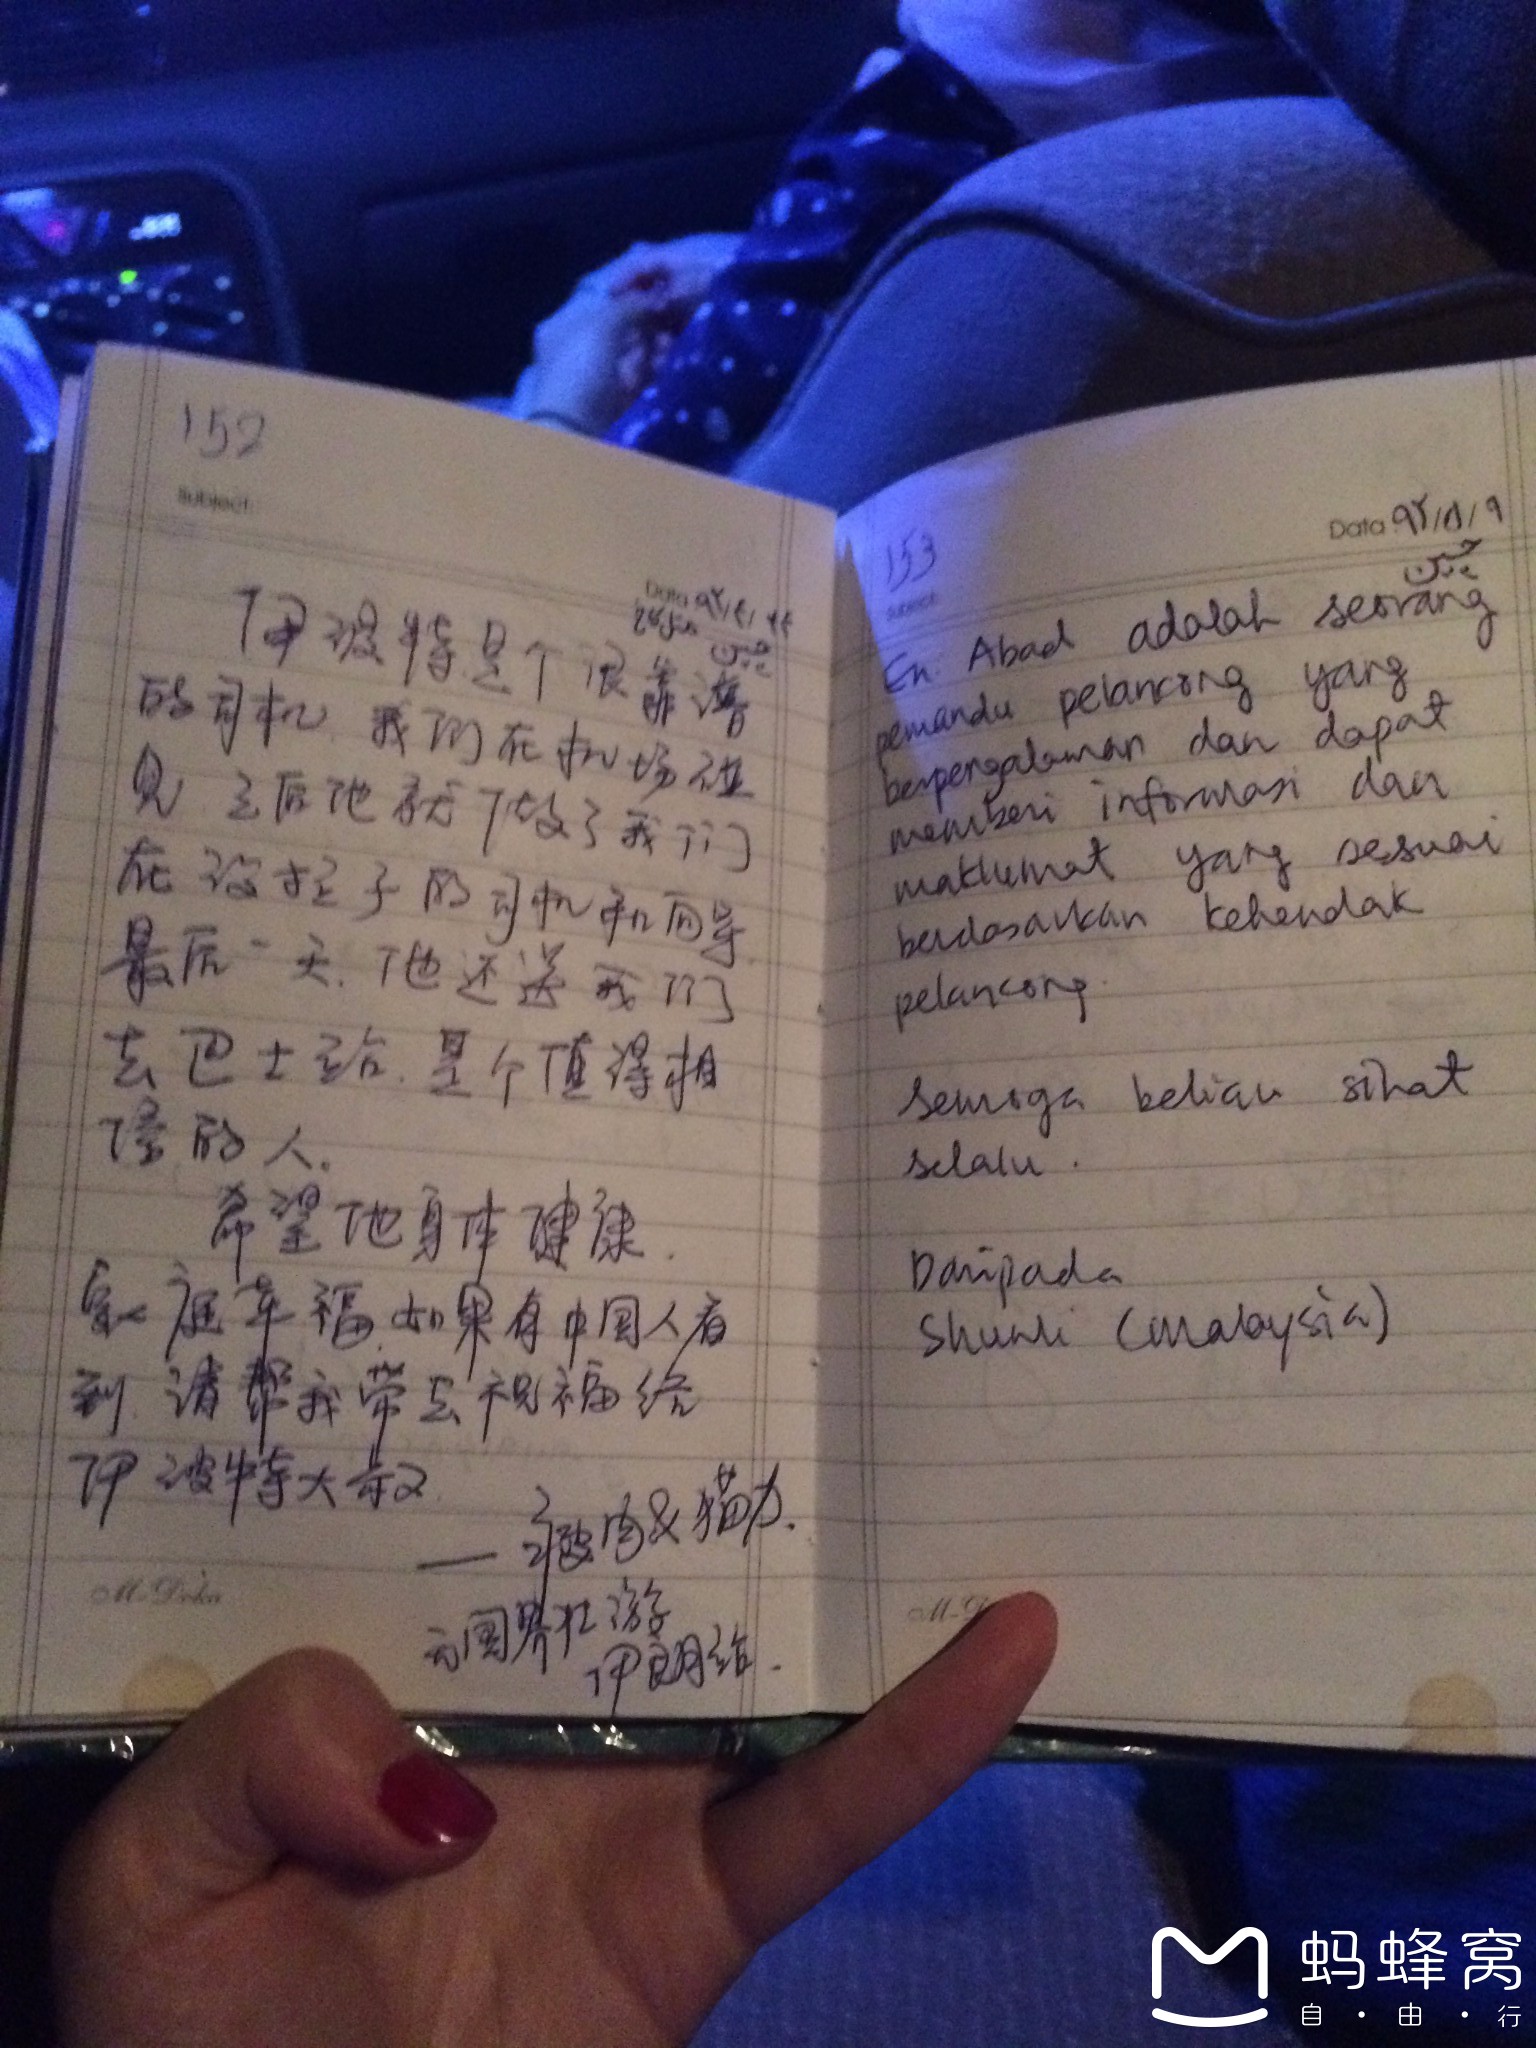 152
Subject:
Data
伊波特是个很靠谱
的司机，我们在机场碰
见，之后他就做了我们
在设拉子的司机和向导
最后一天，他还送我们
去巴士站，是个值得相
信的人。
希望他身体健康，
家庭幸福，如果有中国人看
到，请帮我带去祝福给
伊波特大叔
—— 肉&猫力．
无国界壮游
伊朗站．
M-Doka
153
Data ۹۲/۸/۹
Subject:
En. Abad adalah seorang
pemandu pelancong yang
berpengalaman dan dapat
memberi informasi dan
maklumat yang sesuai
berdasarkan kehendak
pelancong.
Semoga beliau sihat
selalu.
Daripada
(Malaysia)
蚂蜂窝
自·由·行